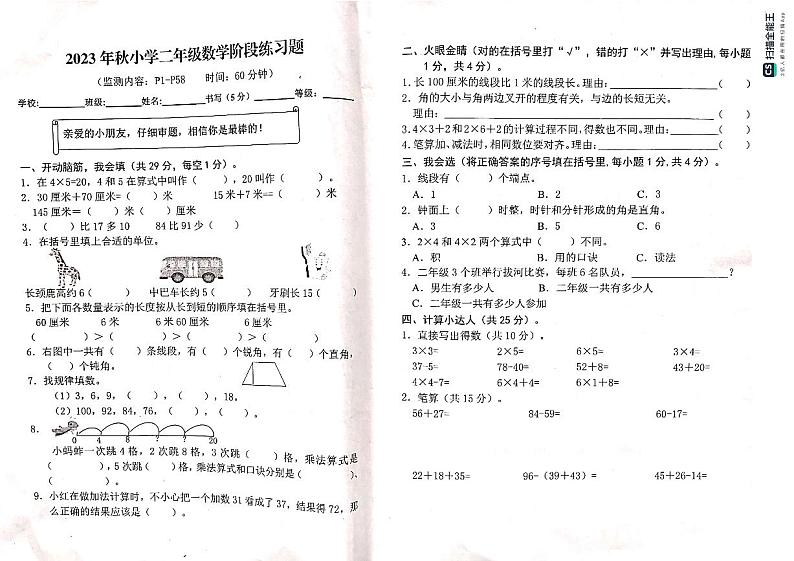 2023 年秋小学二年级数学阶段练习题
(监测内容：P1-P58 时间：60分钟)
学校:________班级:________姓名:________书写(5分)________等级:________
亲爱的小朋友，仔细审题，相信你是最棒的！
一、开动脑筋，我会填（共 29 分，每空 1 分）。
1. 在 4×5=20，4 和 5 在算式中叫作（ ），20 叫作（ ）。
2. 30 厘米+70 厘米=（ ）米 15 米+7 米==（ ）米
145 厘米=（ ）米（ ）厘米
3.（ ）比 17 多 10 84 比 91 少（ ）
4. 在括号里填上合适的单位。
长颈鹿高约 6（ ） 中巴车长约 5（ ） 牙刷长 15（ ）
5. 把下面各数量表示的长度按从长到短的顺序填在括号里。
60 厘米 6 米 6 米 60 厘米 6 厘米
（ ）>（ ）>（ ）>（ ）
6. 右图中一共有（ ）条线段，有（ ）个锐角，有（ ）个直角，
（ ）个钝角。
7. 找规律填数。
（1）3，6，9，（ ），（ ），18。
（2）100，92，84，76，（ ），（ ）。
8.
0 4 ? ? ? 20
小蚂蚱一次跳 4 格，2 次跳 8 格，3 次跳（ ）格，乘法算式是
（ ），5 次跳（ ）格，乘法算式和口诀分别是（ ）、
（ ）。
9. 小红在做加法计算时，不小心把一个加数 31 看成了 37，结果得 72，那
么正确的结果应该是（ ）。
二、火眼金睛（对的在括号里打“√”，错的打“×”并写出理由，每小题
1 分，共 4 分）。
1. 长 100 厘米的线段比 1 米的线段长。理由：________（ ）
2. 角的大小与角两边叉开的程度有关，与边的长短无关。
理由：________（ ）
3. 4×3+2 和 2×6+2 的计算过程不同，得数也不同。理由：________（ ）
4. 笔算加、减法时，相同数位要对齐。理由：________（ ）
三、我会选（将正确答案的序号填在括号里，每小题 1 分，共 4 分）。
1. 线段有（ ）个端点。
A. 1 B. 2 C. 3
2. 钟面上（ ）时整，时针和分针形成的角是直角。
A. 3 B. 5 C. 6
3. 2×4 和 4×2 两个算式中（ ）不同。
A. 积 B. 用的口诀 C. 读法
4. 二年级 3 个班举行拔河比赛，每班 6 名队员，________？
A. 男生有多少人 B. 二年级一共有多少人
C. 二年级一共有多少人参加
四、计算小达人（共 25 分）。
1. 直接写出得数（共 10 分）。
3×3= 2×5= 6×5= 3×4=
37-5= 78-40= 52+8= 43+20=
4×4-7= 6×4+4= 6×1+8=
2. 笔算（共 15 分）。
56+27= 84-59= 60-17=
22+18+35= 96-（39+43）= 45+26-14=
CS 扫描全能王
3亿人都在用的扫描App